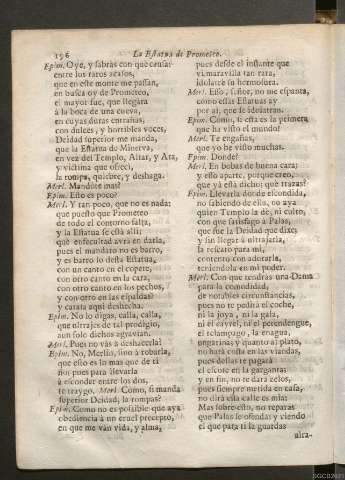 196
La Estatua de Prometeo.
Epim. Oye, y sabràs con que causa:
entre los raros acasos,
que en este monte me passan,
en busca oy de Prometeo,
el mayor fue, que llegàra
à la boca de una cueva,
en cuyas duras entrañas,
con dulces, y horribles voces,
Deidad superior me manda,
que la Estatua de Minerva,
en vez del Templo, Altar, y Ara,
y victima que ofrecì,
la rompa, quiebre, y deshaga.
Merl. Mandòte mas?
Epim. Esto es poco?
Merl. Y tan poco, que no es nada:
puesto que Prometeo
de todo el contorno falta,
y la Estatua se està alli;
què dificultad avrà en darla,
pues el mandarlo no es barro,
y es barro lo desta Estatua,
con un canto en el copete,
con otro canto en la cara,
con otro canto en los pechos,
y con otro en las espaldas?
y catata aqui deshecha.
Epim. No lo digas, calla, calla,
que ultrajes de tal prodigio,
aun solo dichos agravian.
Merl. Pues no vàs à deshacerla?
Epim. No, Merlin, sino à robarla,
que esso es lo mas que de ti
fio; pues para llevarla
à esconder entre los dos,
te traygo. Merl. Còmo, si manda
superior Deidad, la rompas?
Epim. Como no es possible que aya
obediencia à un cruel precepto,
en que me vàn vida, y alma,
pues desde el instante que vi
maravilla tan rara,
idolatrè su hermosura.
Merl. Esso, señor, no me espanta,
como essas Estatuas ay
por aì, que se idolatran.
Epim. Còmo, si esta es la primera
que ha visto el mundo?
Merl. Te engañas,
que yo he visto muchas.
Epim. Donde?
Merl. En bobas de buena cara;
y esto aparte, porque creo,
que yà està dicho; què trazas?
Epim. Llevarla donde escondida,
no sabiendo de ella, no aya
quien Templo la dè, ni culto,
con que satisfago à Palas,
que fue la Deidad que dixe;
y sin llegar à ultrajarla,
la rescato para mi,
contento con adorarla,
teniendola en mi poder.
Merl. Con que tendràs una Dama
para la comodidad,
de notables circunstancias,
pues no te pedirà el coche,
ni la joya, ni la gala,
ni el cayrèl, ni el perendengue,
el telampugo, la enagua,
ungarina; y quanto al plato,
no harà costa en las viandas,
pues dellas te pagarà
el escote en la garganta;
y en fin, no te darà zelos,
pues siempre metida en casa,
no dirà esta calle es mia:
Mas sobre esto, no reparas
que Palas se ofenda; y viendo
el que para ti la guardas
ultra-